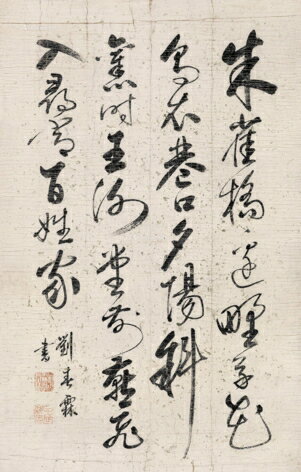 朱雀橋邊野草花
烏衣巷口夕陽斜
舊時王謝堂前燕飛
入尋常百姓家
劉春霖
書